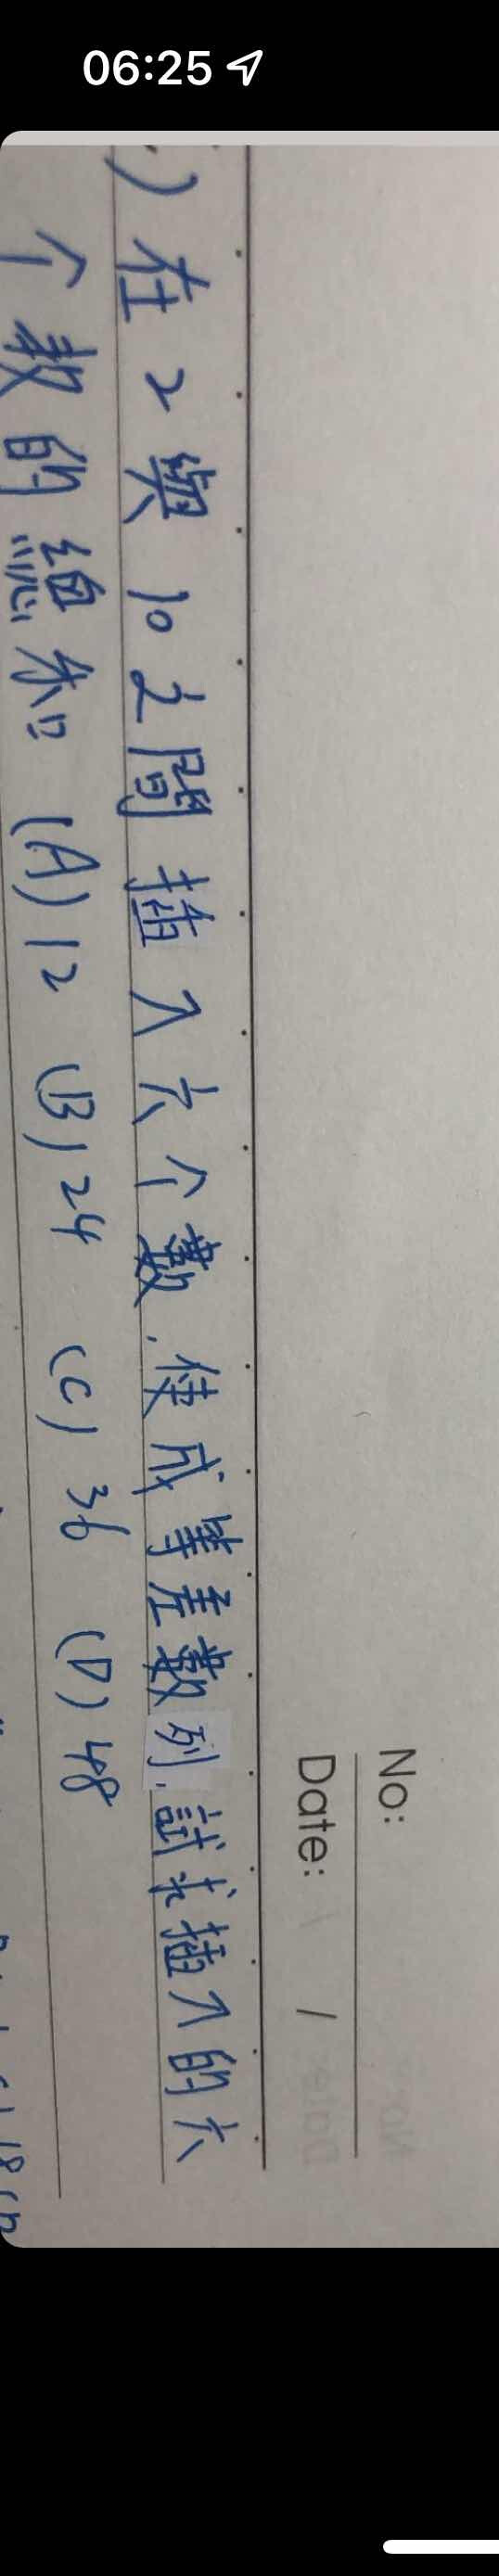 06:25
No:
Date: / /
) 在 2 與 10 之間插入六个數, 使成等差數列, 試求插入的六
个數的總和 (A) 12 (B) 24 (C) 36 (D) 48